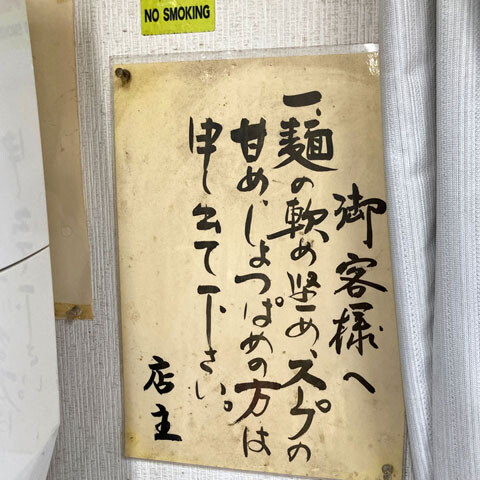 NO SMOKING
御客様へ
一、麺の軟め堅め、スープの
甘め、しょっぱめの方は
申し出て下さい。
店主